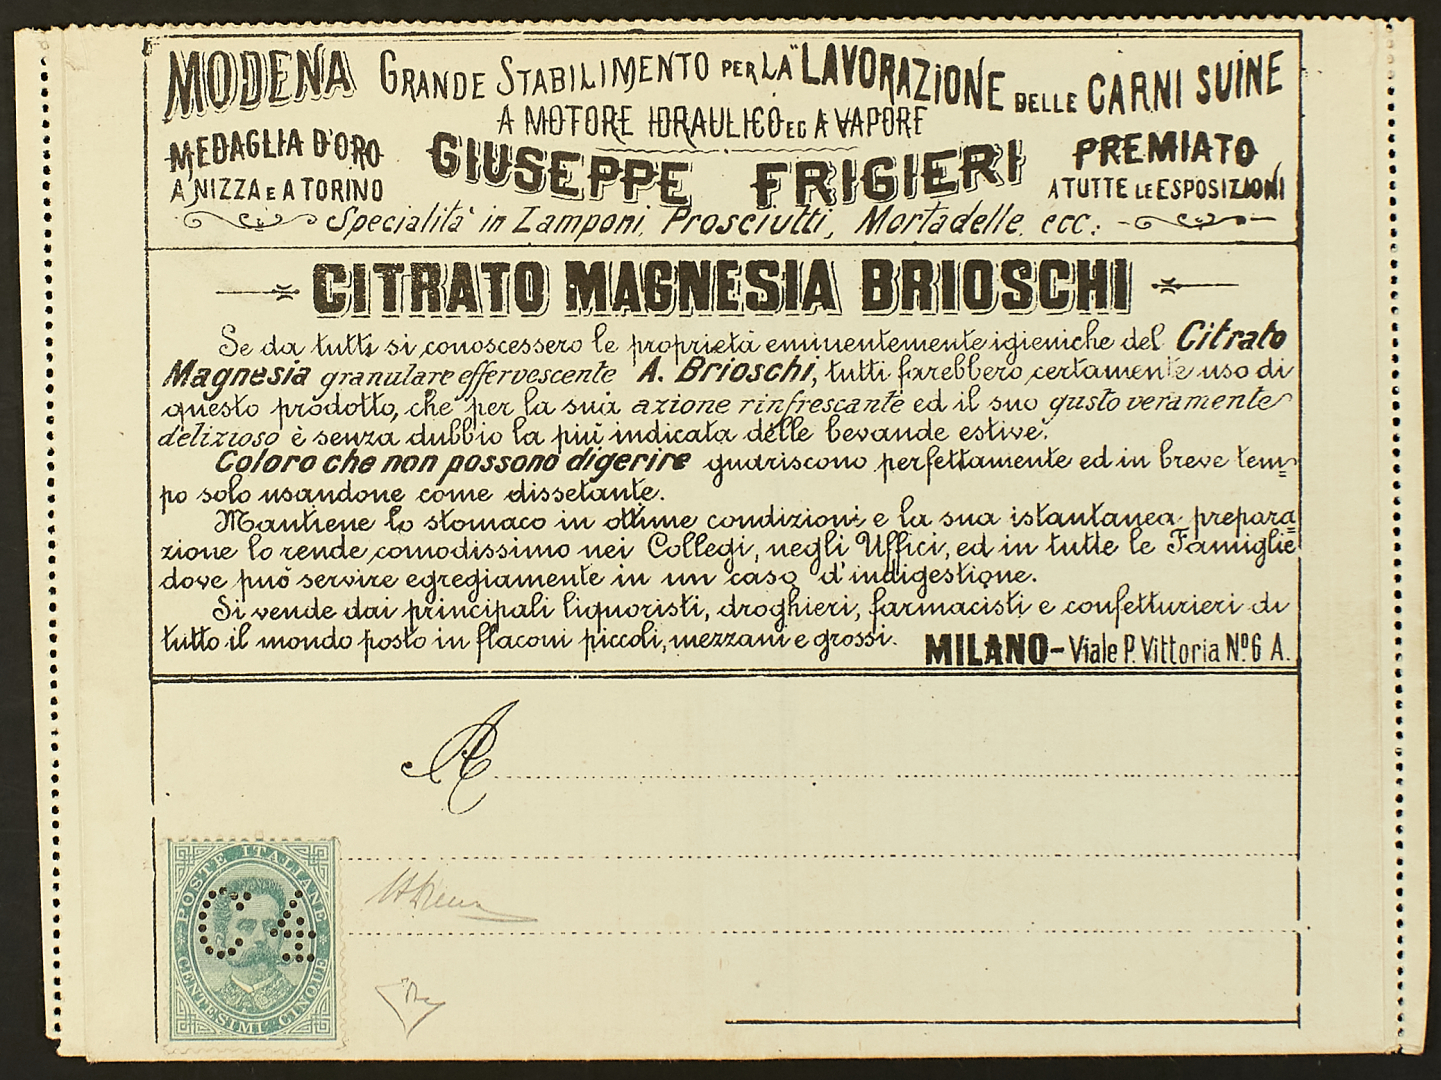 MODENA GRANDE STABILIMENTO PER LA LAVORAZIONE DELLE CARNI SUINE
A MOTORE IDRAULICO ED A VAPORE
MEDAGLIA D'ORO GIUSEPPE FRIGIERI PREMIATO
A NIZZA E A TORINO A TUTTE LE ESPOSIZIONI
Specialità in Zamponi, Prosciutti, Mortadelle, ecc:
CITRATO MAGNESIA BRIOSCHI
Se da tutti si conoscessero le proprietà eminentemente igieniche del Citrato
Magnesia granulare effervescente A. Brioschi, tutti farebbero certamente uso di
questo prodotto, che per la sua azione rinfrescante ed il suo gusto veramente
delizioso è senza dubbio la più indicata delle bevande estive.
Coloro che non possono digerire guariscono perfettamente ed in breve tem=
po solo usandone come dissetante.
Mantiene lo stomaco in ottime condizioni e la sua istantanea prepara=
zione lo rende comodissimo nei Collegi, negli Uffici, ed in tutte le Famiglie
dove può servire egregiamente in un caso d'indigestione.
Si vende dai principali liquoristi, droghieri, farmacisti e confetturieri di
tutto il mondo posto in flaconi piccoli, mezzani e grossi.
MILANO - Viale P. Vittoria Nº 6 A.
A
POSTE ITALIANE
C 4
CENTESIMI CINQUE